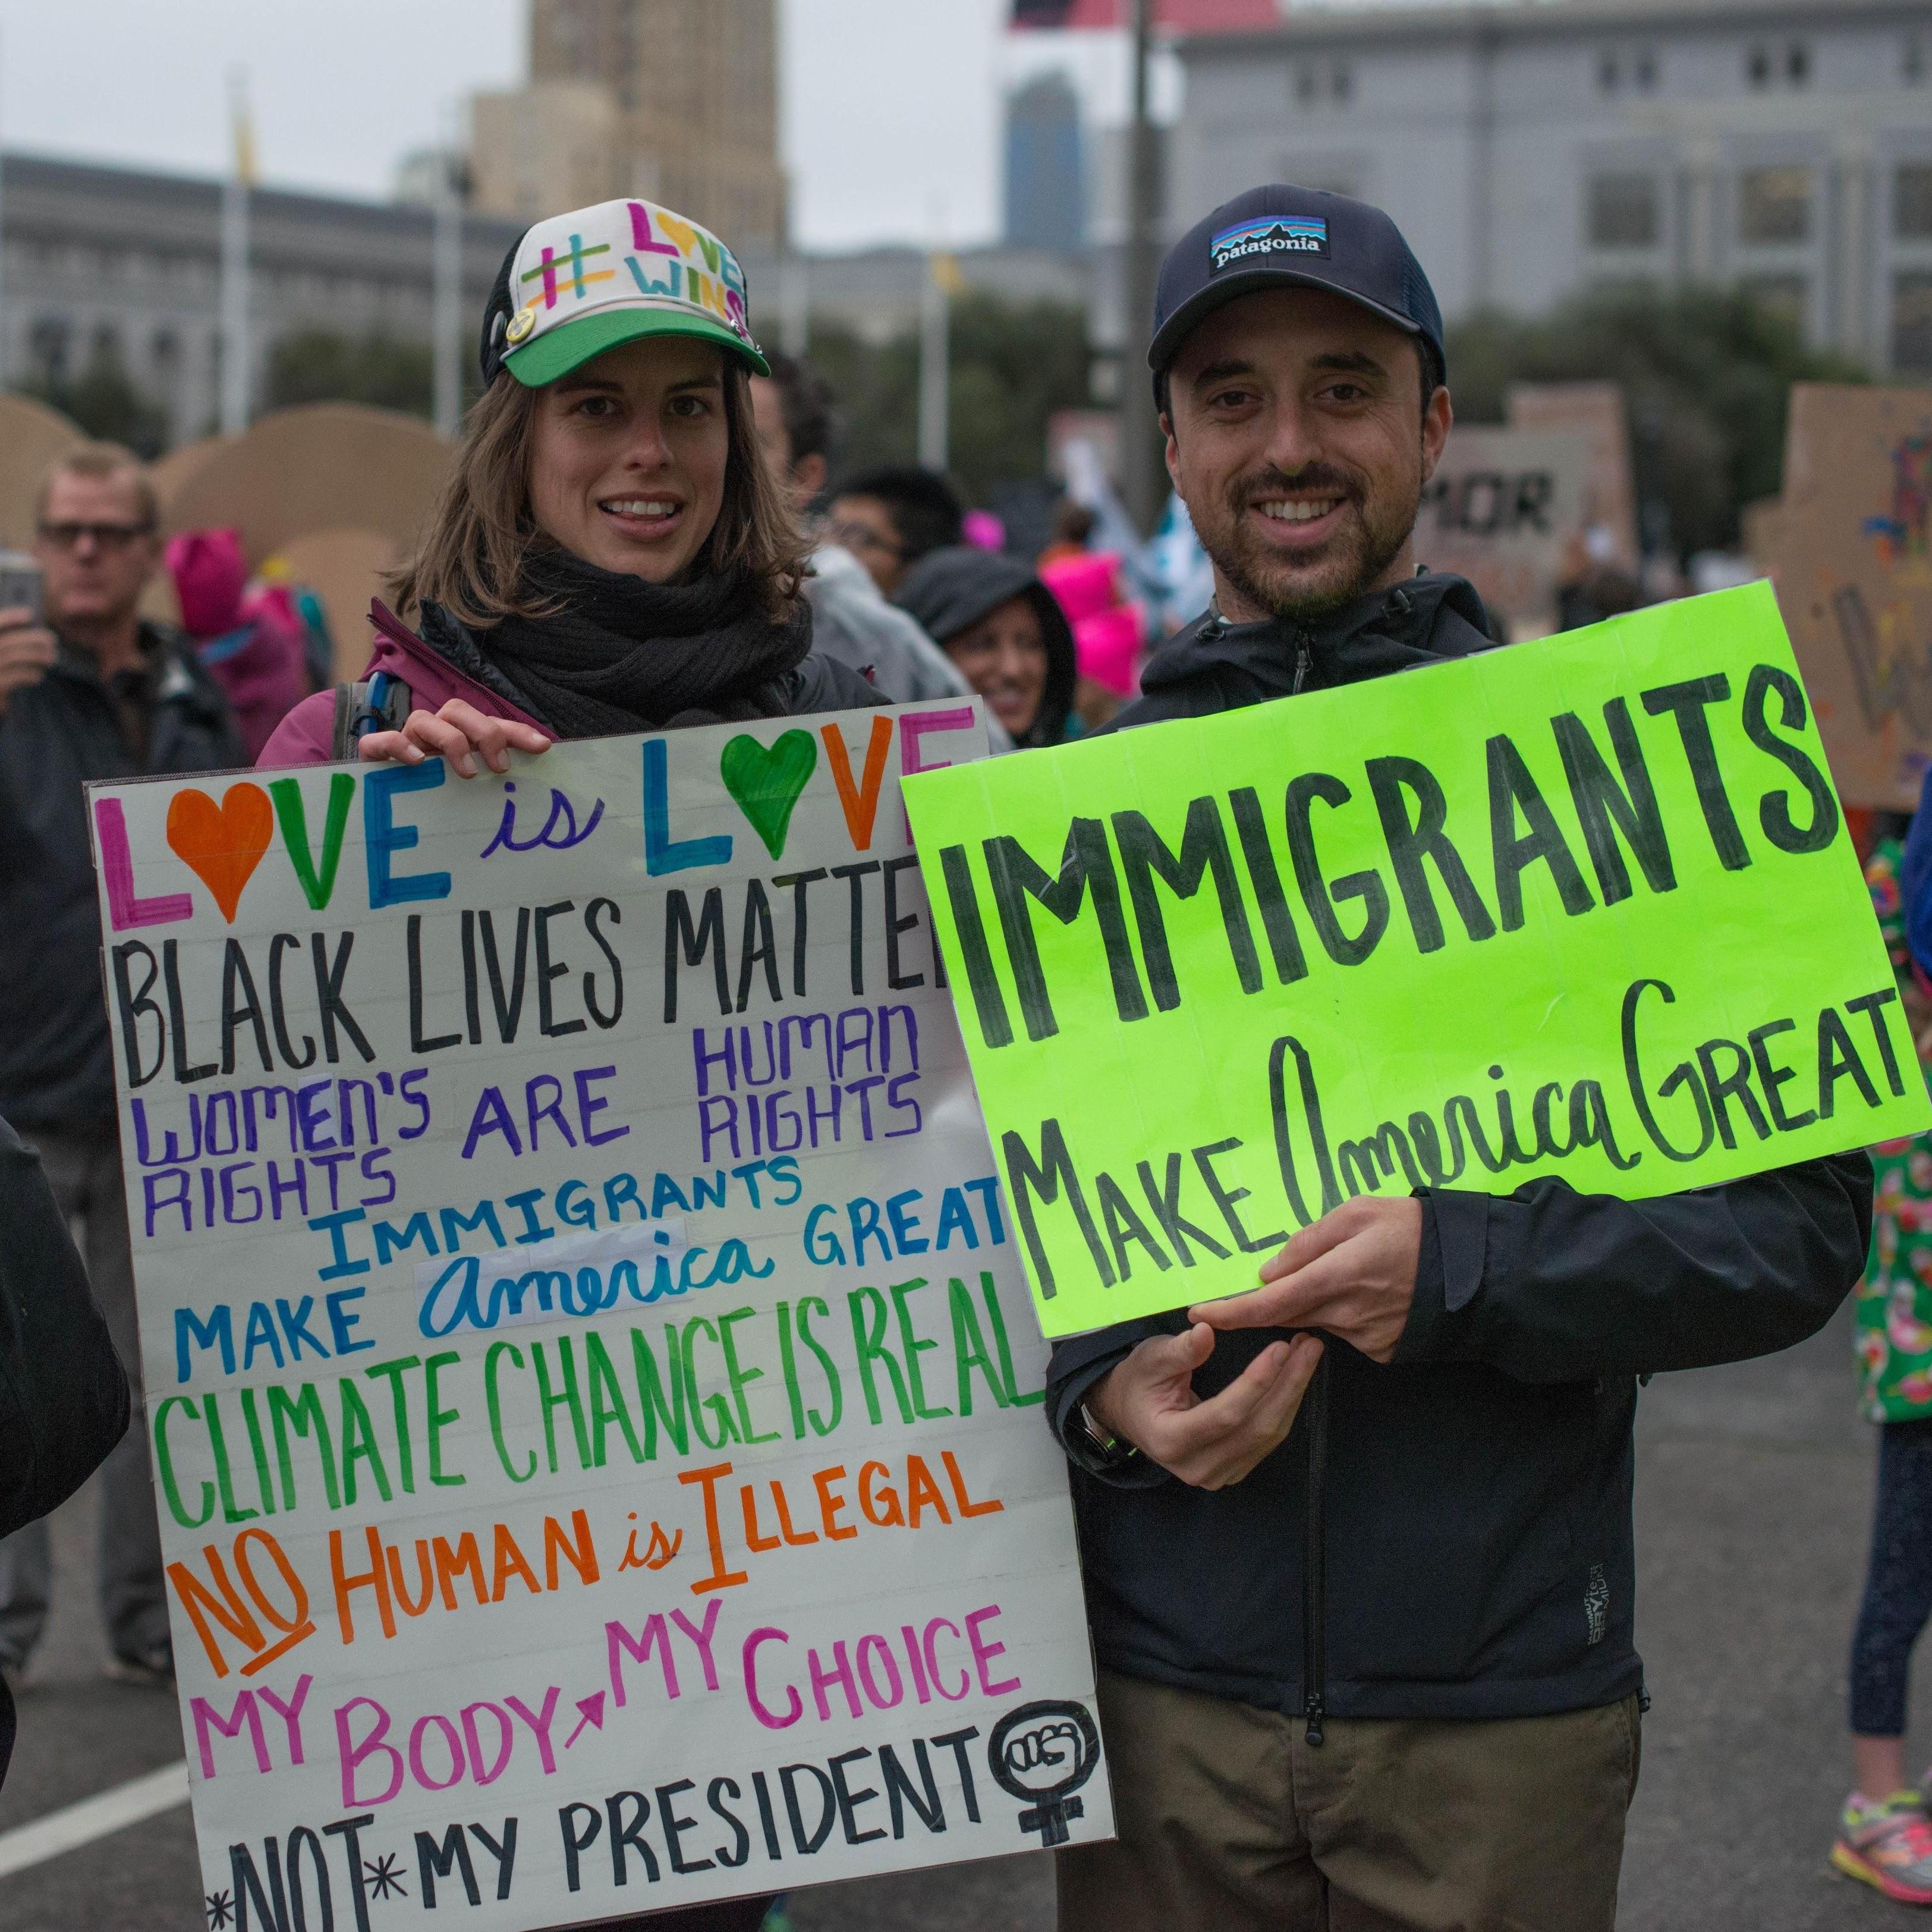 # LOVE
WINS
patagonia
MOR
LOVE is LOVE
BLACK LIVES MATTE
WOMEN'S ARE HUMAN
RIGHTS RIGHTS
IMMIGRANTS
MAKE America GREAT
CLIMATE CHANGE IS REAL
NO HUMAN is ILLEGAL
MY BODY MY CHOICE
*NOT* MY PRESIDENT
IMMIGRANTS
MAKE America GREAT
MAMMUT
DRYtech
PREMIUM